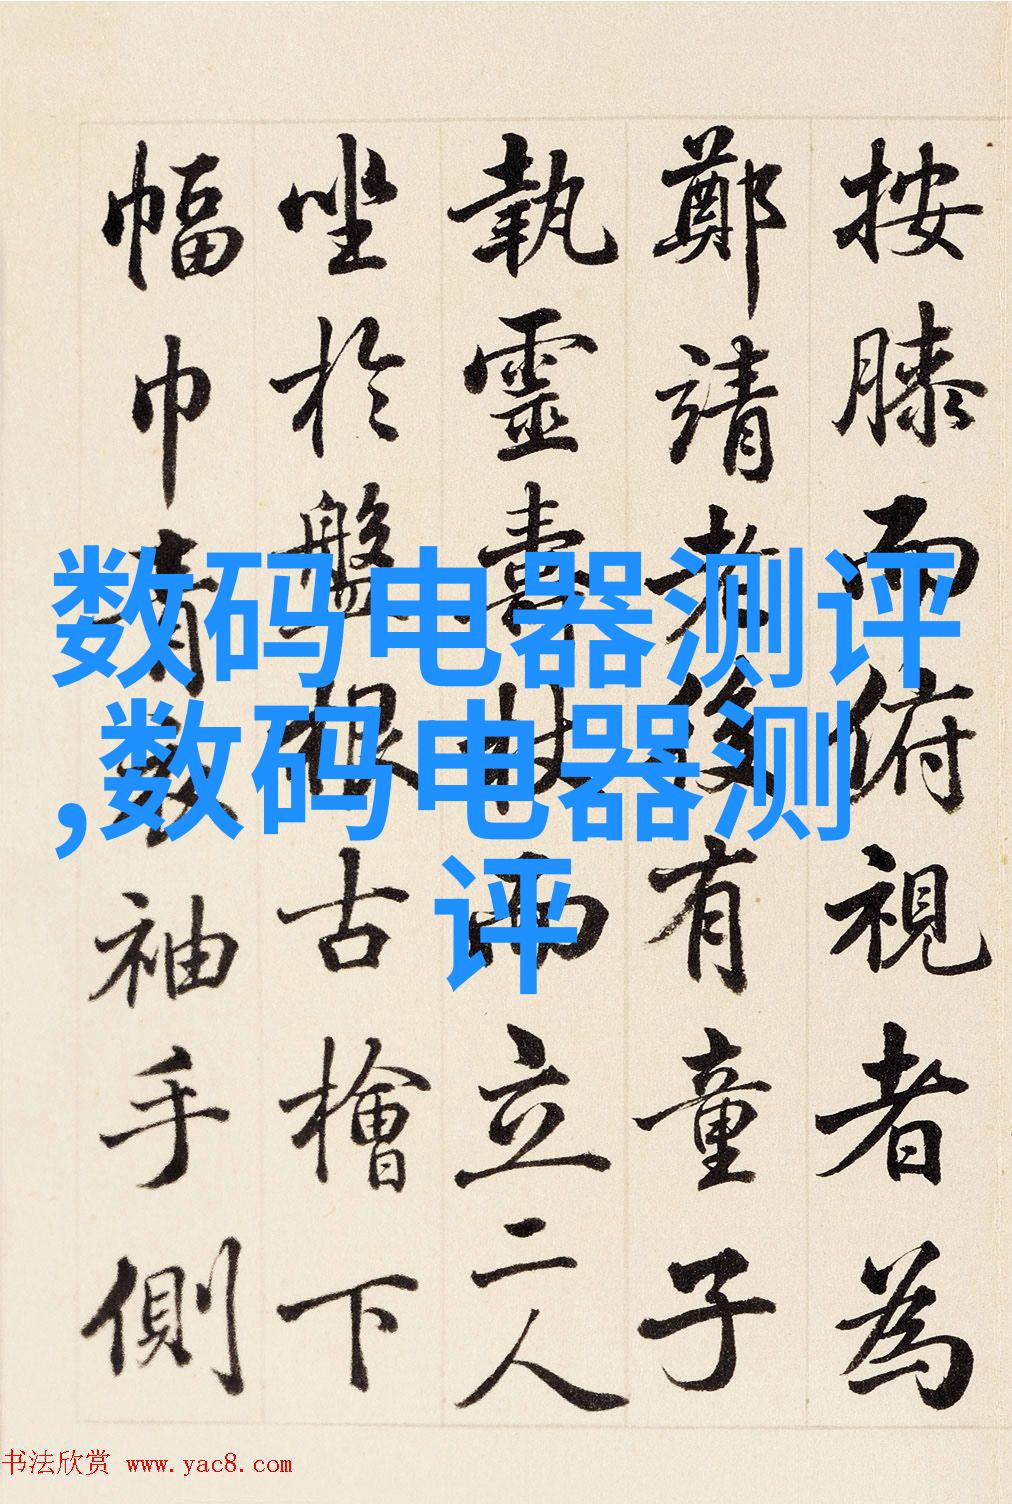 按膝而俯視者為
鄭靖老後有童子
執靈壽杖而立二人
坐於盤根古檜下
幅巾青衣袖手側
数码电器测评
,数码电器测
评
书法欣赏 www.yac8.com